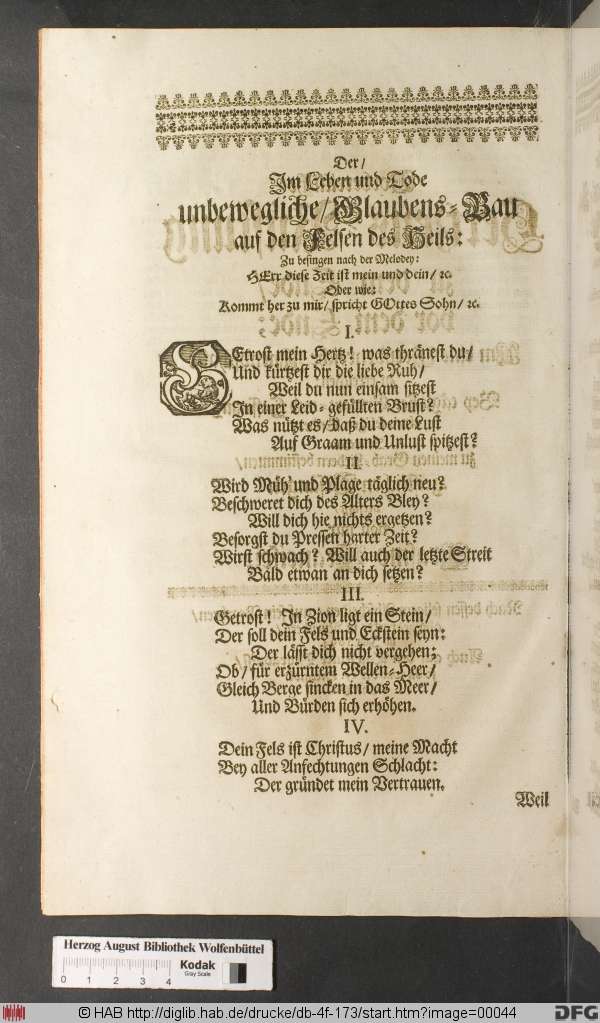 Der/
Im Leben und Tode
unbewegliche/ Glaubens-Bau
auf den Felsen des Heils:
Zu besingen nach der Melodey:
HErr diese Zeit ist mein und dein/ ꝛc.
Oder wie:
Kommt her zu mir/ spricht GOttes Sohn/ ꝛc.
I.
GEtrost mein Hertz! was thränest du/
Und kürtzest dir die liebe Ruh/
Weil du nun einsam sitzest
In einer Leid-gefüllten Brust?
Was nützt es/ daß du deine Lust
Auf Graam und Unlust spitzest?
II.
Wird Müh' und Plage täglich neu?
Beschweret dich des Alters Bley?
Will dich hie nichts ergetzen?
Besorgst du Pressen harter Zeit?
Wirst schwach? Will auch der letzte Streit
Bald etwan an dich setzen?
III.
Getrost! In Zion ligt ein Stein/
Der soll dein Fels und Eckstein seyn:
Der lässt dich nicht vergehen;
Ob/ für erzürntem Wellen-Heer/
Gleich Berge sincken in das Meer/
Und Bürden sich erhöhen.
IV.
Dein Fels ist Christus/ meine Macht
Bey aller Anfechtungen Schlacht:
Der gründet mein Vertrauen.
Weil
Herzog August Bibliothek Wolfenbüttel
0 1 2 3 4
Kodak
Gray Scale
© HAB http://diglib.hab.de/drucke/db-4f-173/start.htm?image=00044
DFG